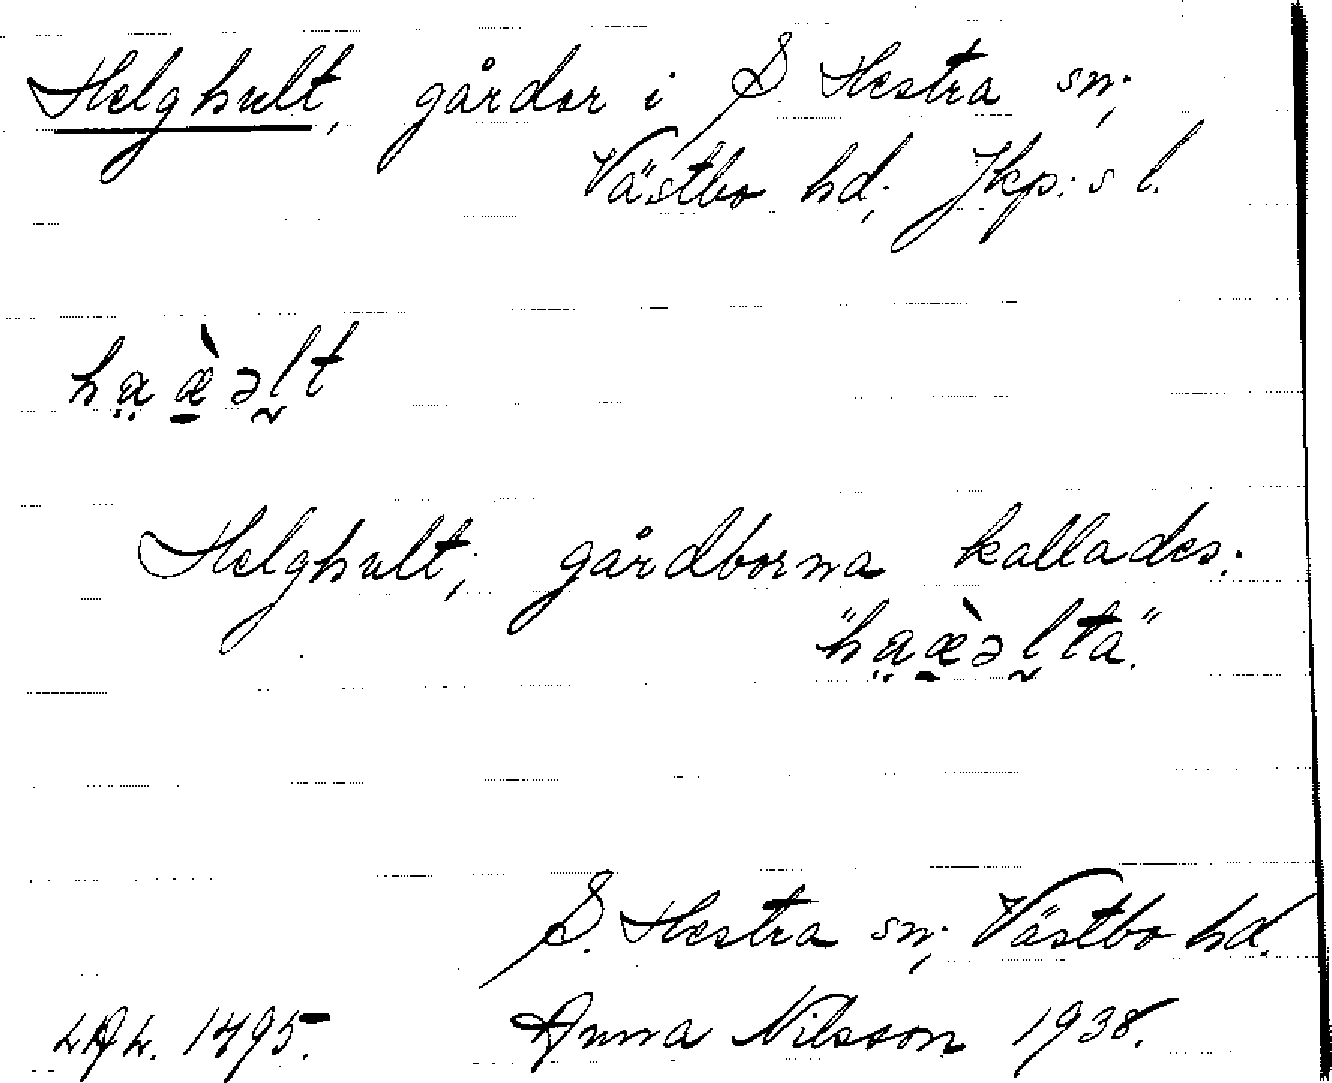 Helghult, gårdar i S. Hestra sn;
Västbo hd; Jkp:s l.
ha̤æ̠̀əl̰t
Helghult; gårdborna kallades:
"ha̤æ̠̀əl̰ta".
S. Hestra sn; Västbo hd.
LAL. 1495. Anna Nilsson 1938.